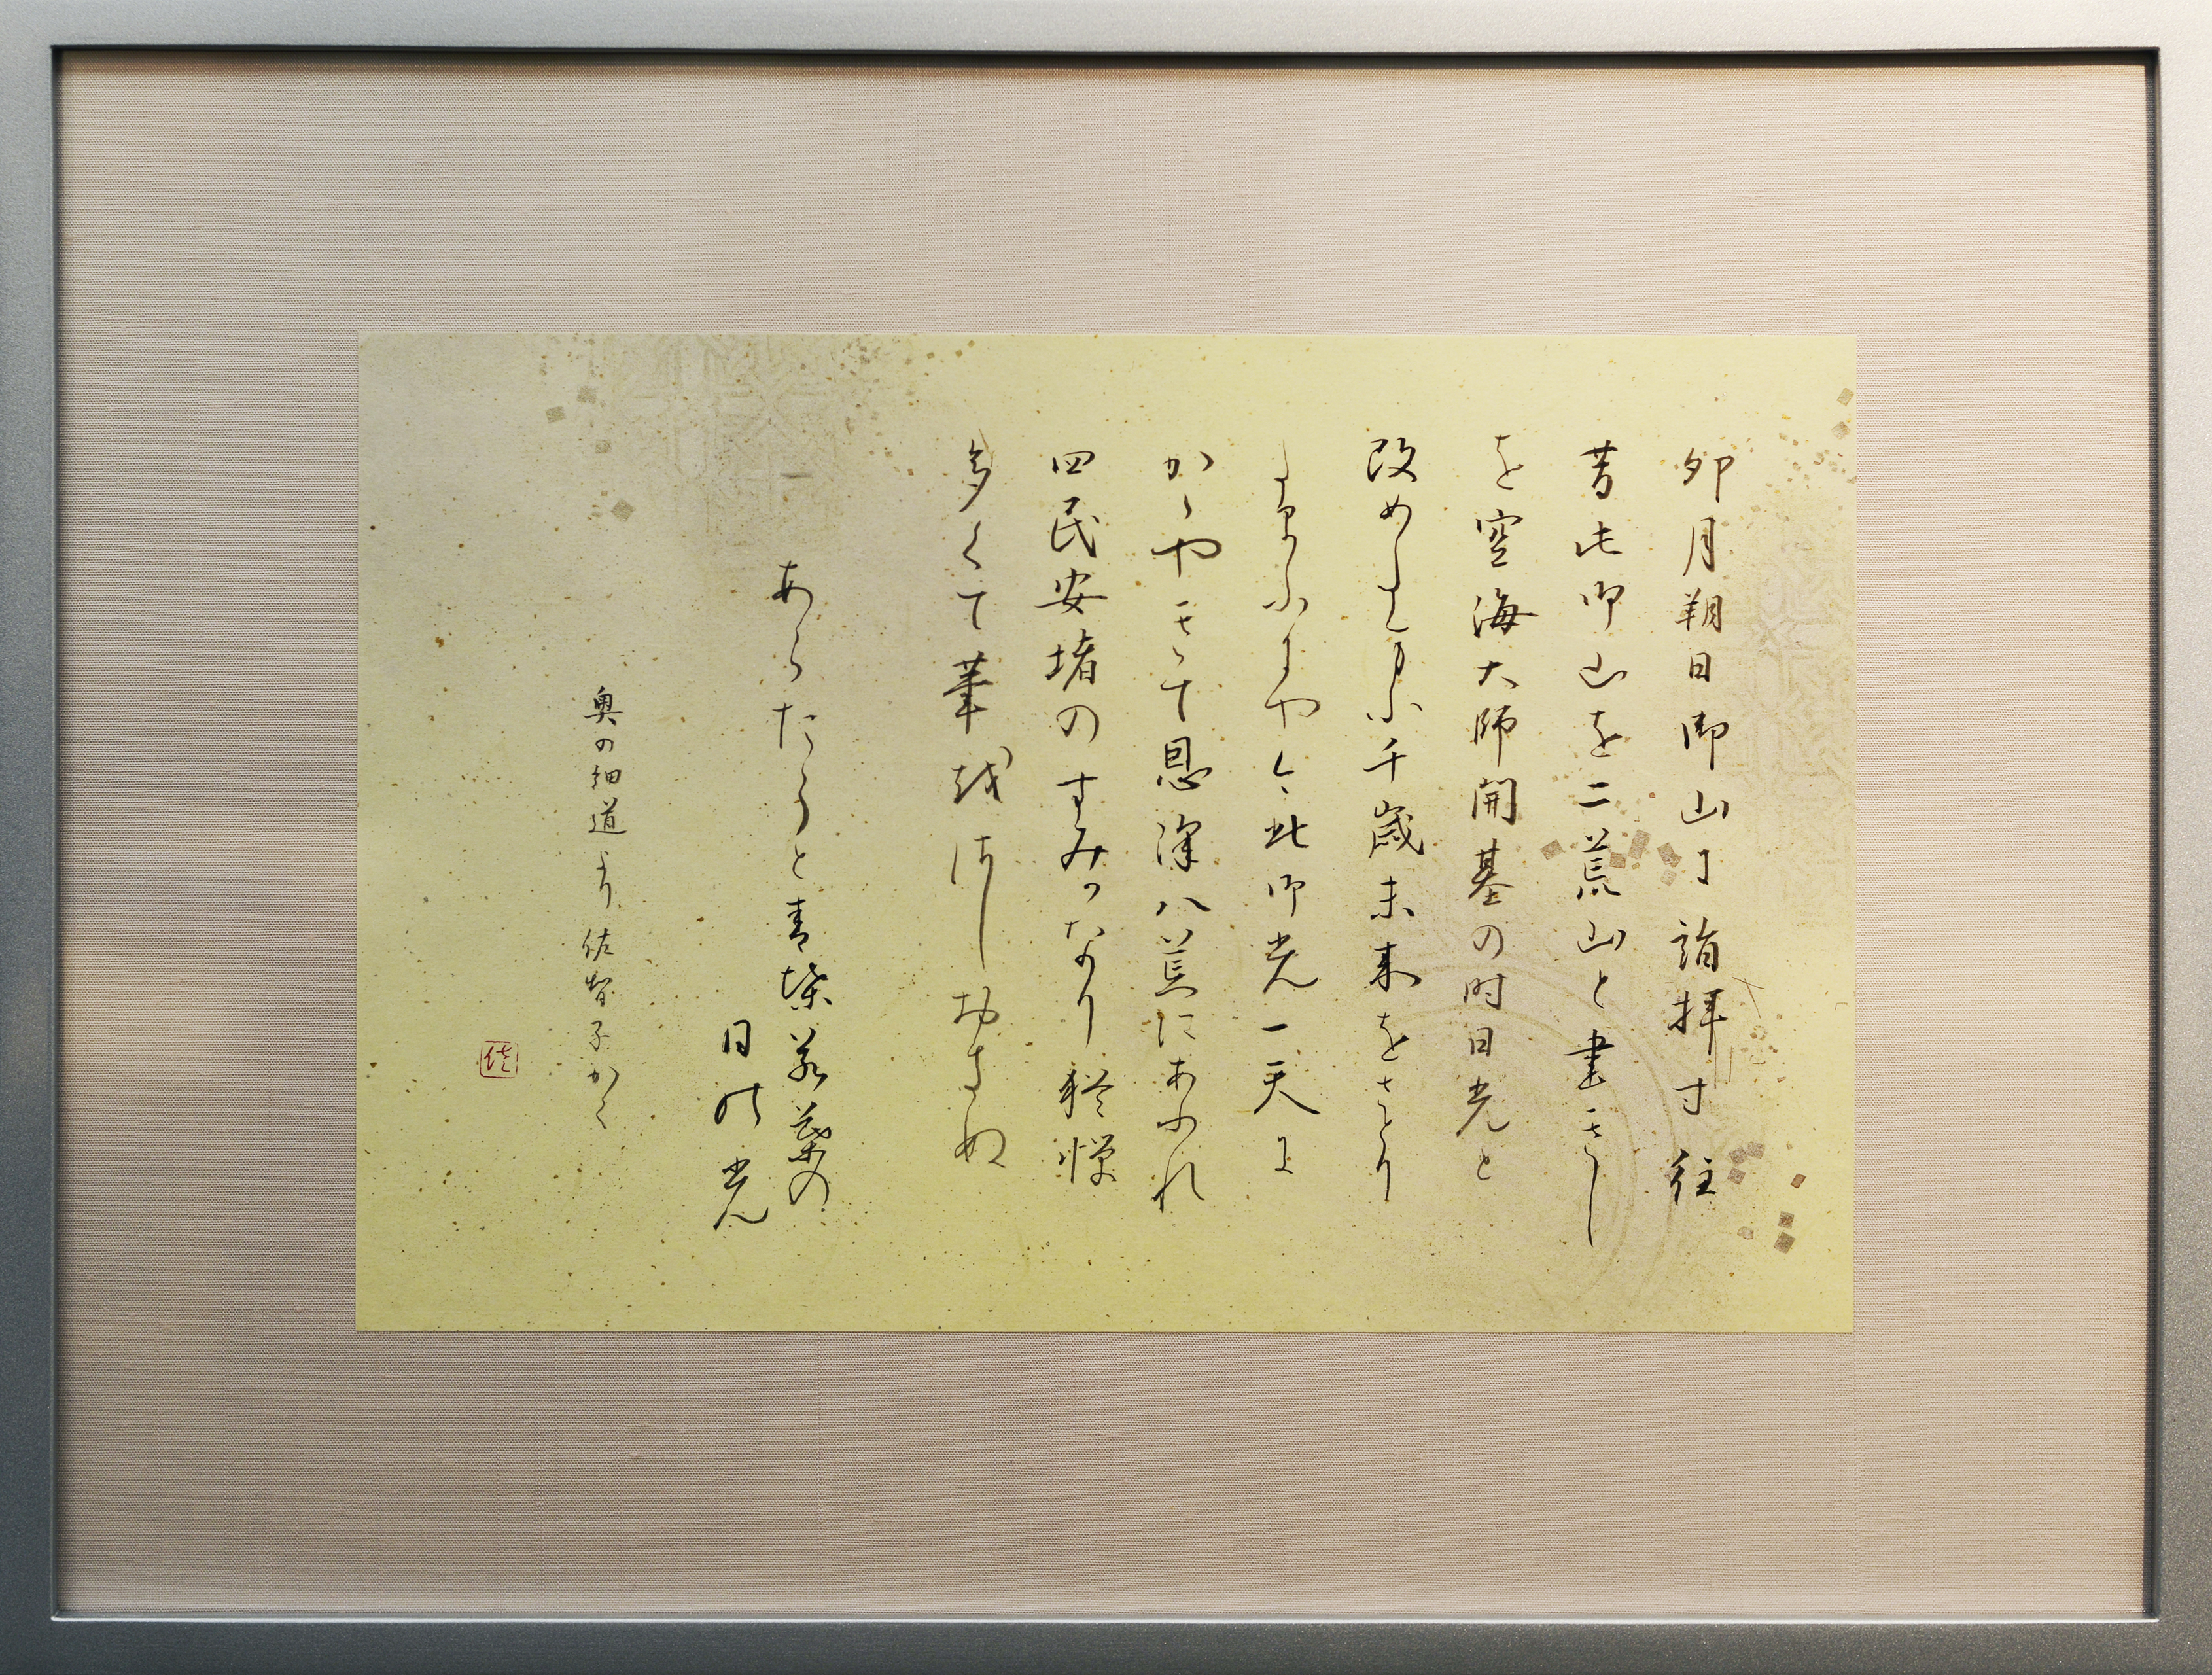 卯月朔日御山に詣拝す往
昔此御山を二荒山と書きし
を空海大師開基の時日光と
改めしたまふ千歳未来をさとり
たまふにや今此御光一天に
かゝやきて恩澤八荒にあふれ
四民安堵のすみかなり猶憚
多くて筆をさしおきぬ
あらたうと青葉若葉の
日の光
奥の細道より 佐智子かく
佐